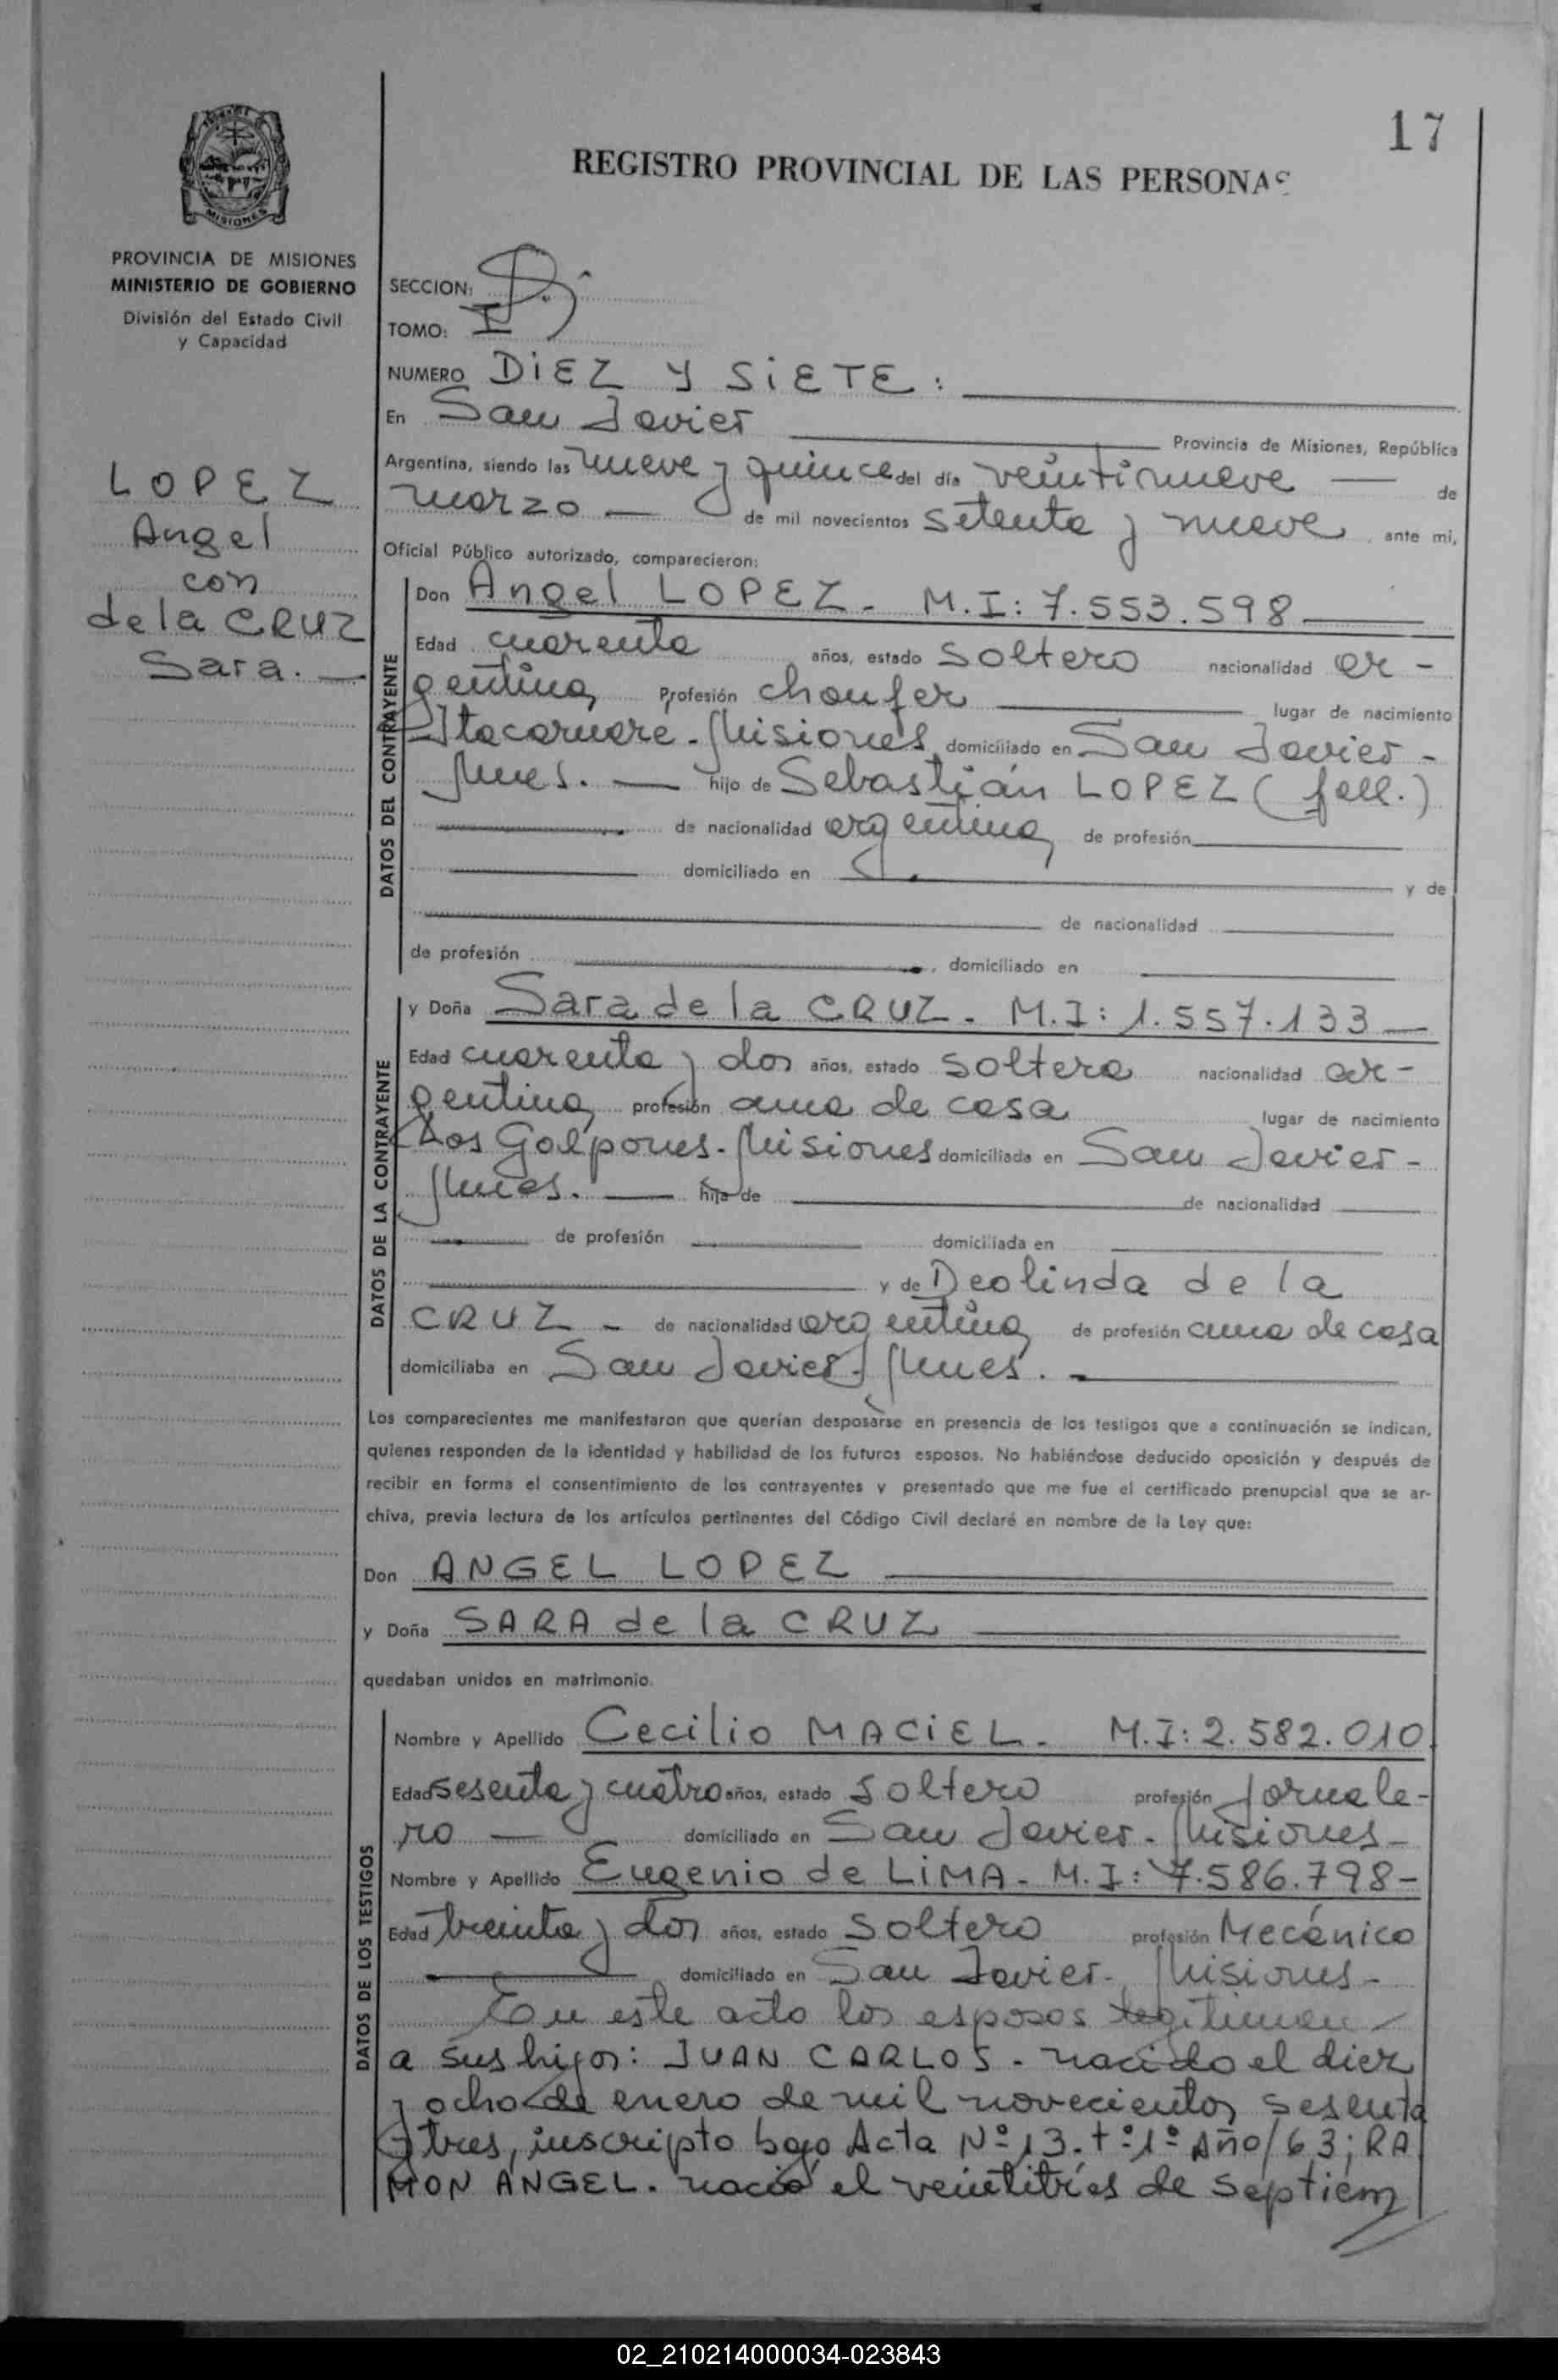 17
REGISTRO PROVINCIAL DE LAS PERSONAS
MISIONES
PROVINCIA DE MISIONES
MINISTERIO DE GOBIERNO
División del Estado Civil
y Capacidad
LOPEZ
Angel
con
de la CRUZ
Sara.
SECCION:
TOMO: I
NUMERO DIEZ Y SIETE:
En San Javier Provincia de Misiones, República
Argentina, siendo las nueve y quince del día veintinueve de
marzo de mil novecientos setenta y nueve, ante mi,
Oficial Público autorizado, comparecieron:
DATOS DEL CONTRAYENTE
Don Angel LOPEZ. M.I: 7.553.598
Edad cuarenta años, estado soltero nacionalidad ar-
gentina Profesión choufer lugar de nacimiento
Itacaruaré - Misiones domiciliado en San Javier -
Mnes. hijo de Sebastián LOPEZ (fall.)
de nacionalidad argentina de profesión
domiciliado en y de
de nacionalidad
de profesión , domiciliado en
DATOS DE LA CONTRAYENTE
y Doña Sara de la CRUZ. M.I: 1.557.133
Edad cuarenta y dos años, estado soltera nacionalidad ar-
gentina profesión ama de casa lugar de nacimiento
Los Galpones - Misiones domiciliada en San Javier -
Mnes. hija de de nacionalidad
de profesión domiciliada en
y de Deolinda de la
CRUZ - de nacionalidad argentina de profesión ama de casa
domiciliaba en San Javier - Mnes.
Los comparecientes me manifestaron que querían desposarse en presencia de los testigos que a continuación se indican,
quienes responden de la identidad y habilidad de los futuros esposos. No habiéndose deducido oposición y después de
recibir en forma el consentimiento de los contrayentes y presentado que me fue el certificado prenupcial que se ar-
chiva, previa lectura de los artículos pertinentes del Código Civil declaré en nombre de la Ley que:
Don ANGEL LOPEZ
y Doña SARA de la CRUZ
quedaban unidos en matrimonio.
DATOS DE LOS TESTIGOS
Nombre y Apellido Cecilio MACIEL. M.I: 2.582.010
Edad sesenta y cuatro años, estado soltero profesión jornale-
ro domiciliado en San Javier - Misiones -
Nombre y Apellido Eugenio de LIMA - M.I: 7.586.798 -
Edad treinta y dos años, estado soltero profesión Mecánico
domiciliado en San Javier - Misiones -
En este acto los esposos legitiman
a sus hijos: JUAN CARLOS - nacido el diez
y ocho de enero de mil novecientos sesenta
y tres, inscripto bajo Acta Nº 13. tº 1º Año/63; RA
MON ANGEL. nació el veintitrés de Septiem
02_210214000034-023843